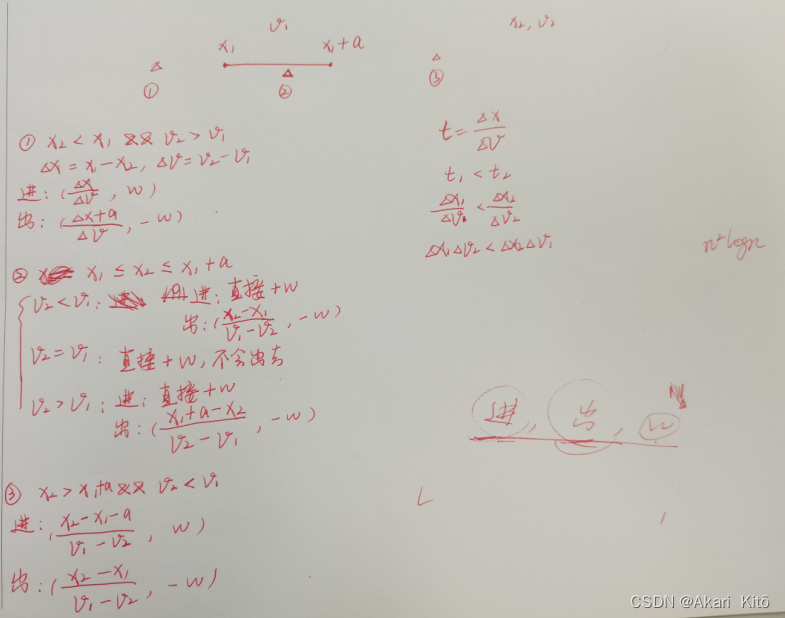 v₁
x₂, v₂
x₁
x₁+a
①
②
③
① x₂ < x₁ && v₂ > v₁
Δx = x₁-x₂, Δv = v₂-v₁
进: (Δx/Δv, w)
出: (Δx+a/Δv, -w)
② x₁ ≤ x₂ ≤ x₁+a
v₂<v₁: 进: 直接+w
出: (x₂-x₁/v₁-v₂, -w)
v₂=v₁: 直接+w, 不会出去
v₂>v₁: 进: 直接+w
出: (x₁+a-x₂/v₂-v₁, -w)
③ x₂ > x₁+a && v₂ < v₁
进: (x₂-x₁-a/v₁-v₂, w)
出: (x₂-x₁/v₁-v₂, -w)
t = Δx/Δv
t₁ < t₂
Δx₁/Δv₁ < Δx₂/Δv₂
Δx₁Δv₂ < Δx₂Δv₁
n²logn
进, 出, w
CSDN @Akari Kitō